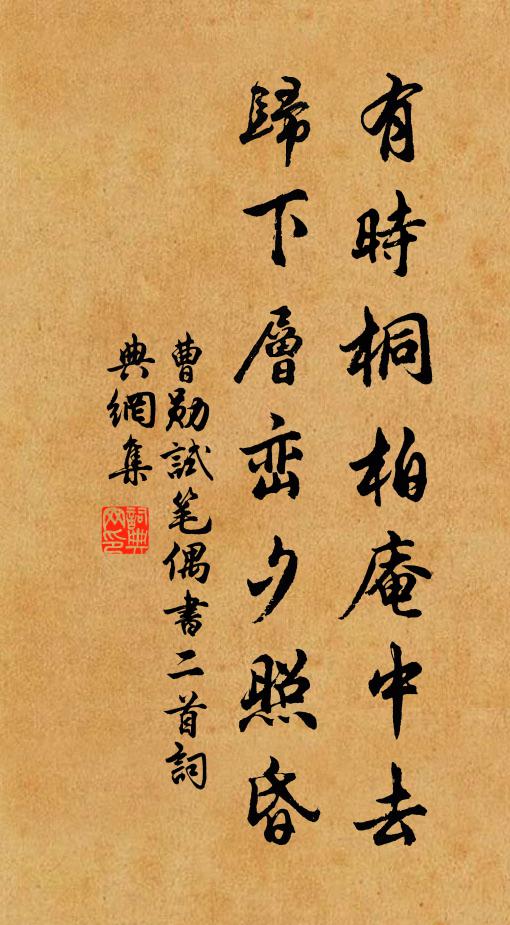 有時桐柏庵中去
歸下層峦夕照昏
曹勋試笔偶書二首詞
典網集
詞典
网印